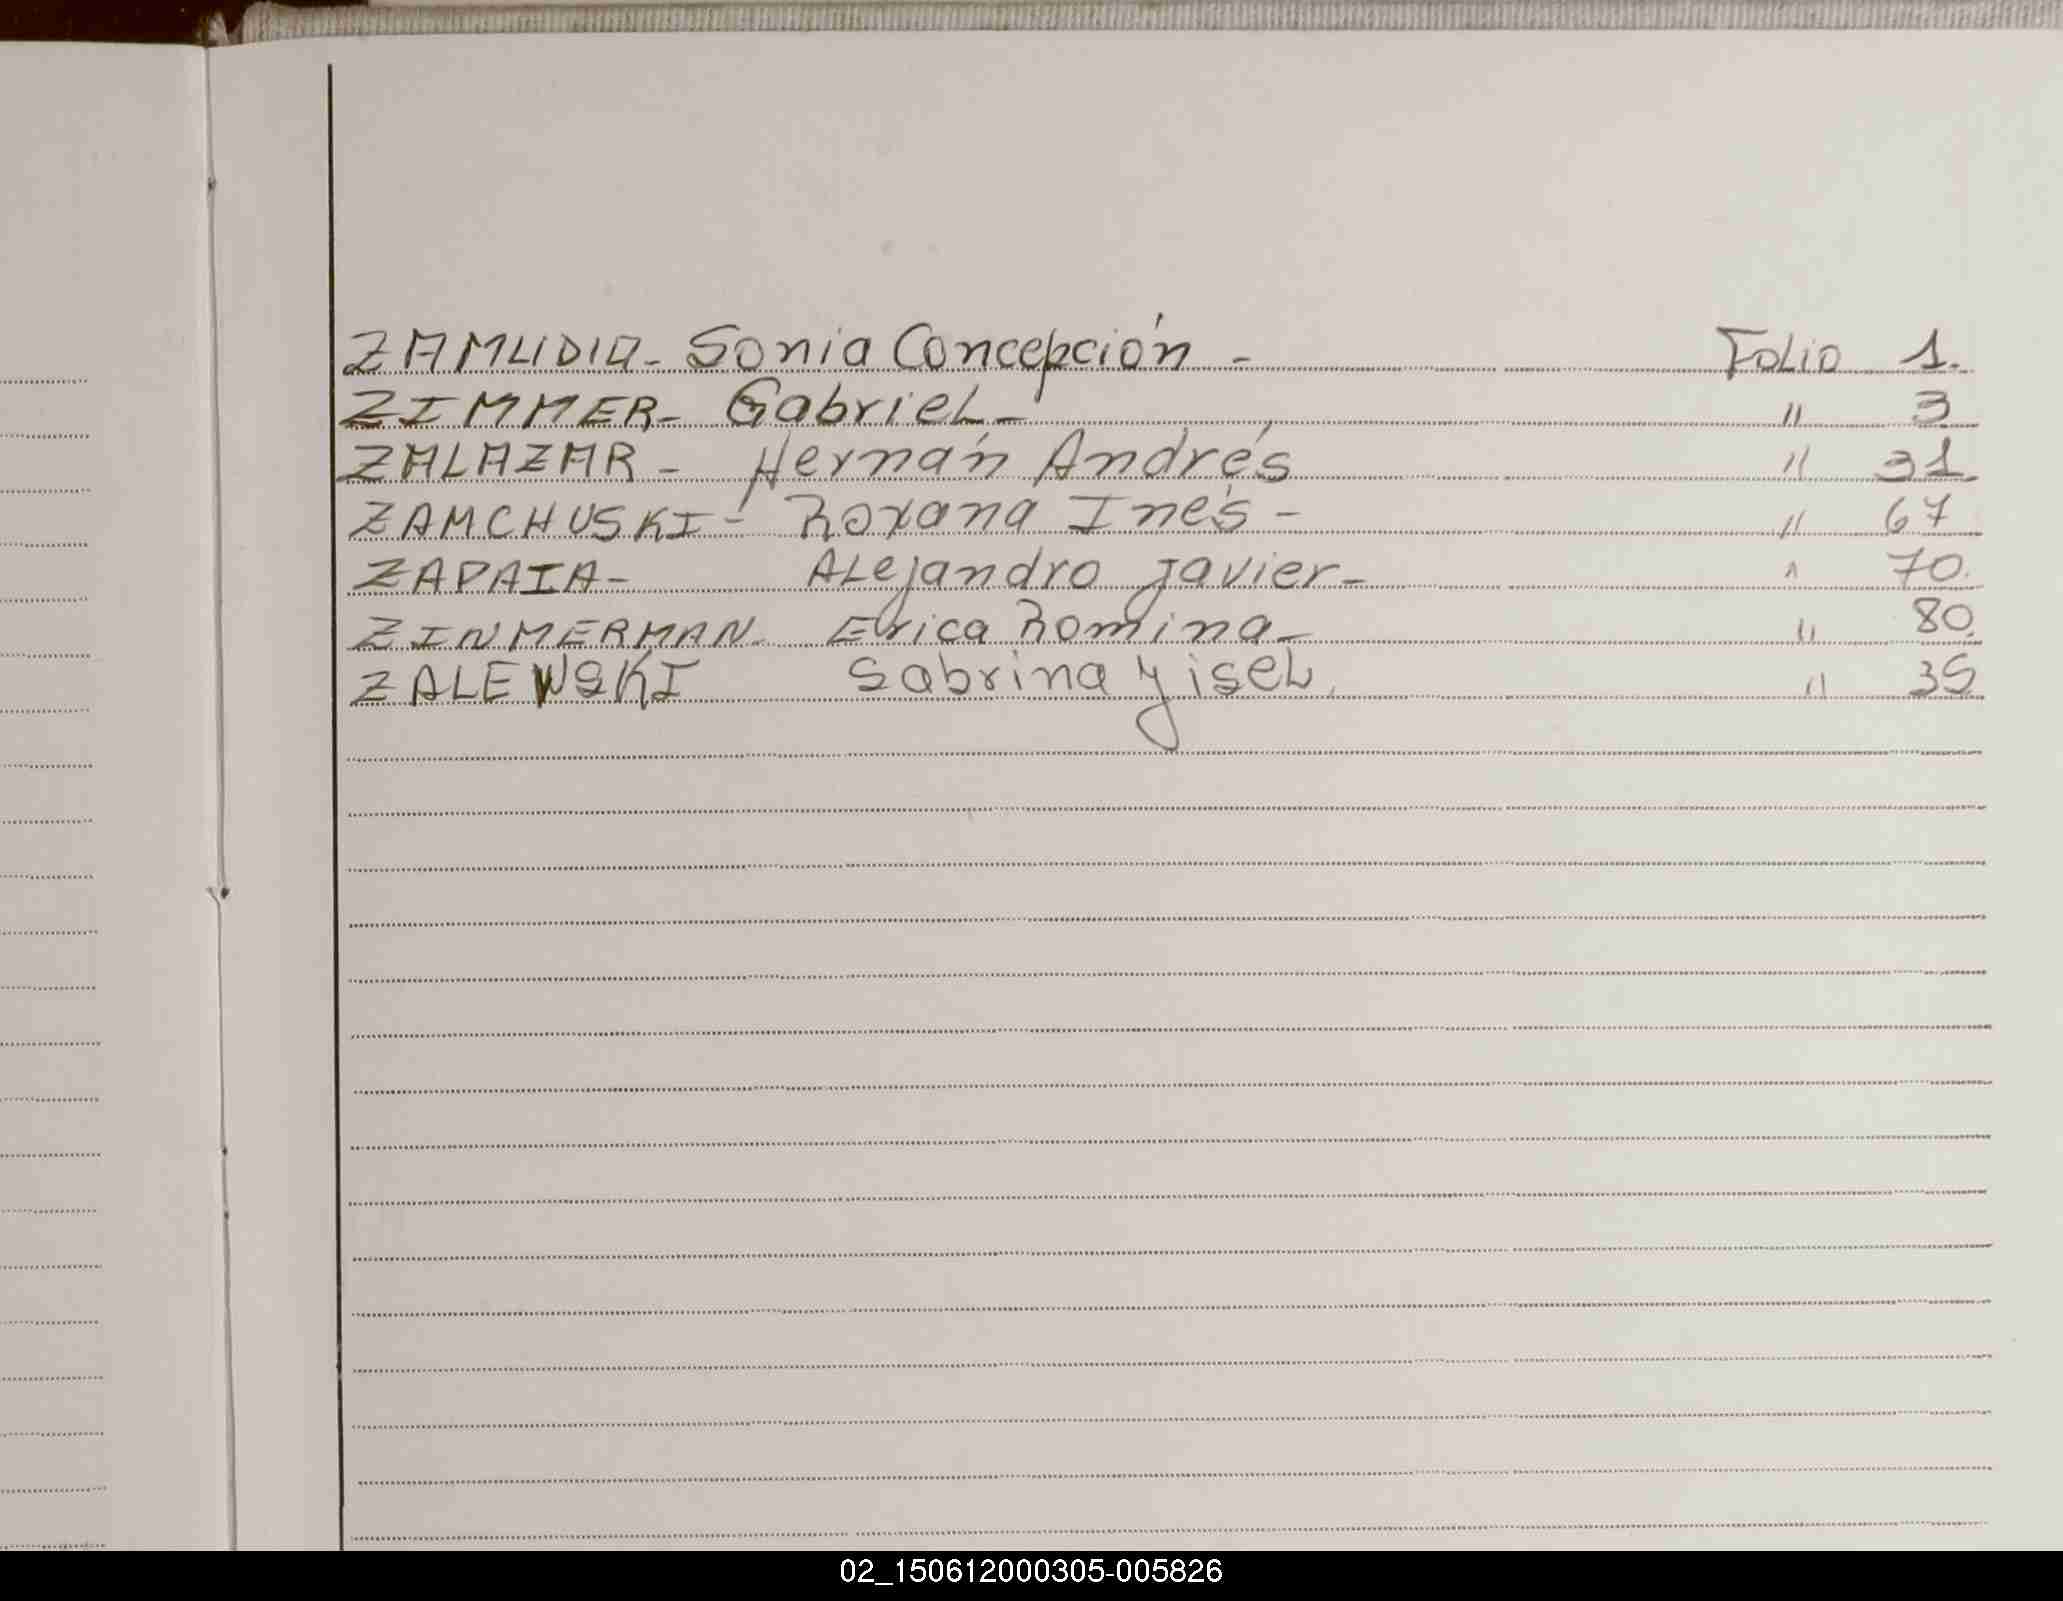 ZAMUDIA- Sonia Concepción - Folio 1.
ZIMMER- Gabriel- " 3
ZALAZAR - Hernán Andrés " 31
ZAMCHUSKI - Roxana Inés - " 67
ZAPAIA- Alejandro Javier- " 70.
ZINMERMAN- Erica Romina- " 80.
ZALEWSKI Sabrina Yisel. " 35
02_150612000305-005826